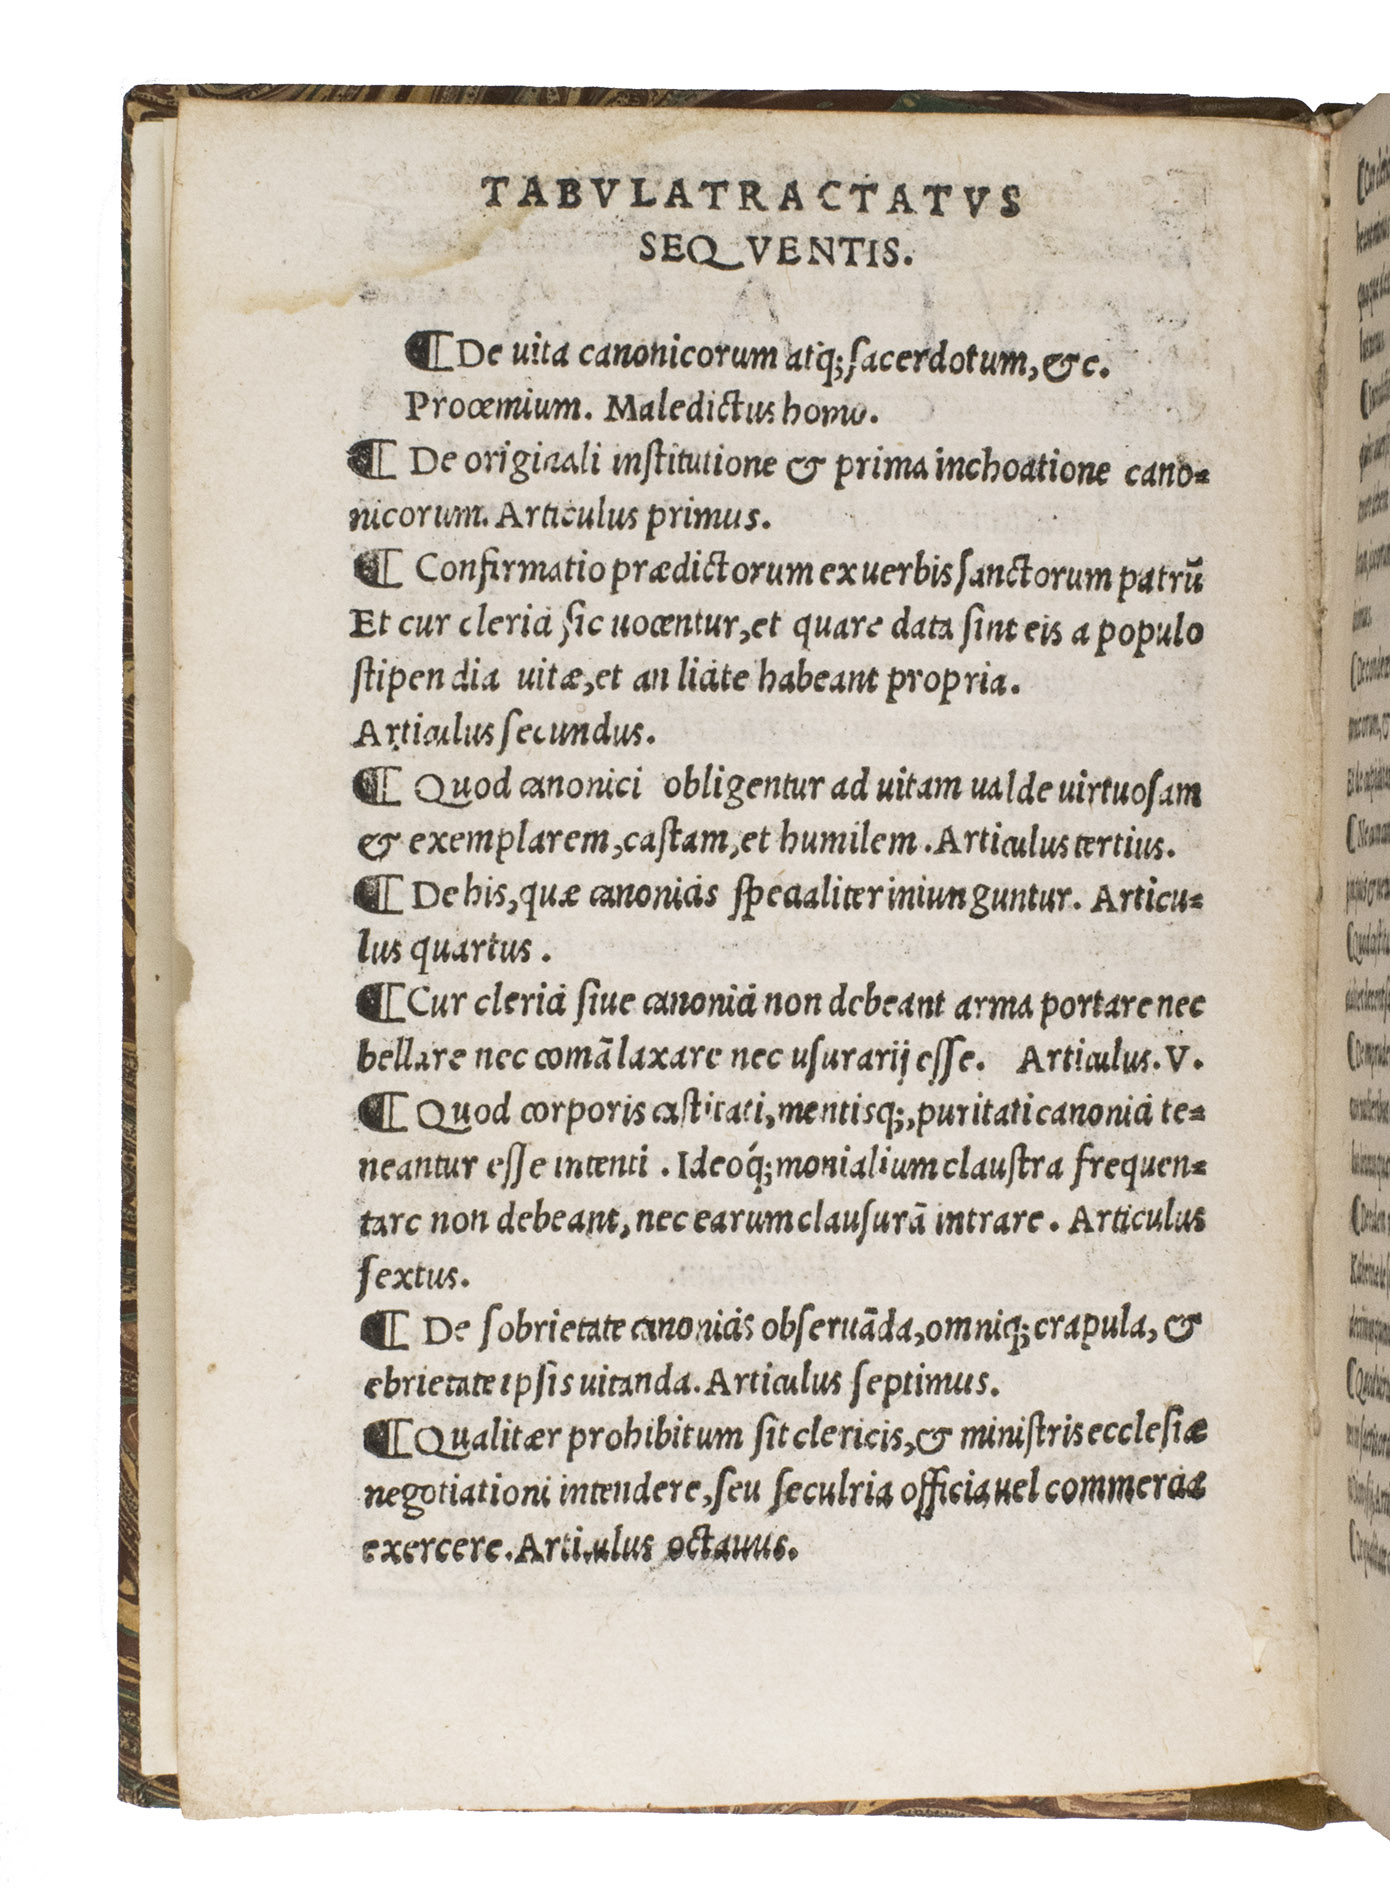 TABVLATRACTATVS
SEQVENTIS.
¶De uita canonicorum atq;sacerdotum,&c.
Prooemium. Maledictus homo.
¶ De originali institutione & prima inchoatione cano=
nicorum. Articulus primus.
¶ Confirmatio prædictorum ex uerbis sanctorum patrū
Et cur clerici sic uocentur,et quare data sint eis a populo
stipendia uitæ,et an licite habeant propria.
Articulus secundus.
¶ Quod canonici obligentur ad uitam ualde uirtuosam
& exemplarem,castam,et humilem.Articulus tertius.
¶ De his,quæ canonicis specialiter iniunguntur. Articu=
lus quartus.
¶Cur clerici siue canonici non debeant arma portare nec
bellare nec comā laxare nec usurarij esse. Articulus.V.
¶ Quod corporis castitati,mentisq;,puritati canonici te=
neantur esse intenti. Ideoq́;monialium claustra frequen=
tare non debeant,nec earum clausurā intrare. Articulus
sextus.
¶ De sobrietate canonicis obseruāda,omniq;crapula,&
ebrietate ipsis uitanda.Articulus septimus.
¶Qualitær prohibitum sit clericis,& ministris ecclesiæ
negotiationi intendere,seu seculria officia uel commercia
exercere.Articulus octauus.